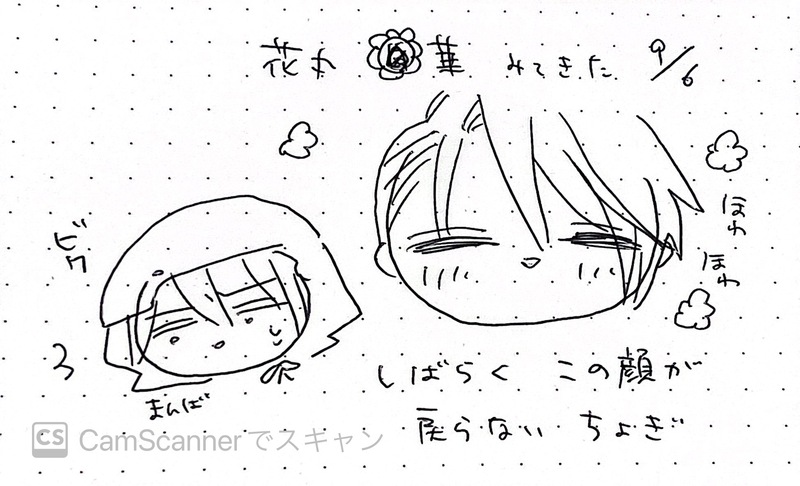 花丸 華 みてきた 9/6
ほわ
ほわ
ビク
まんば
しばらく この顔が
戻らない ちょぎ
CS CamScannerでスキャン